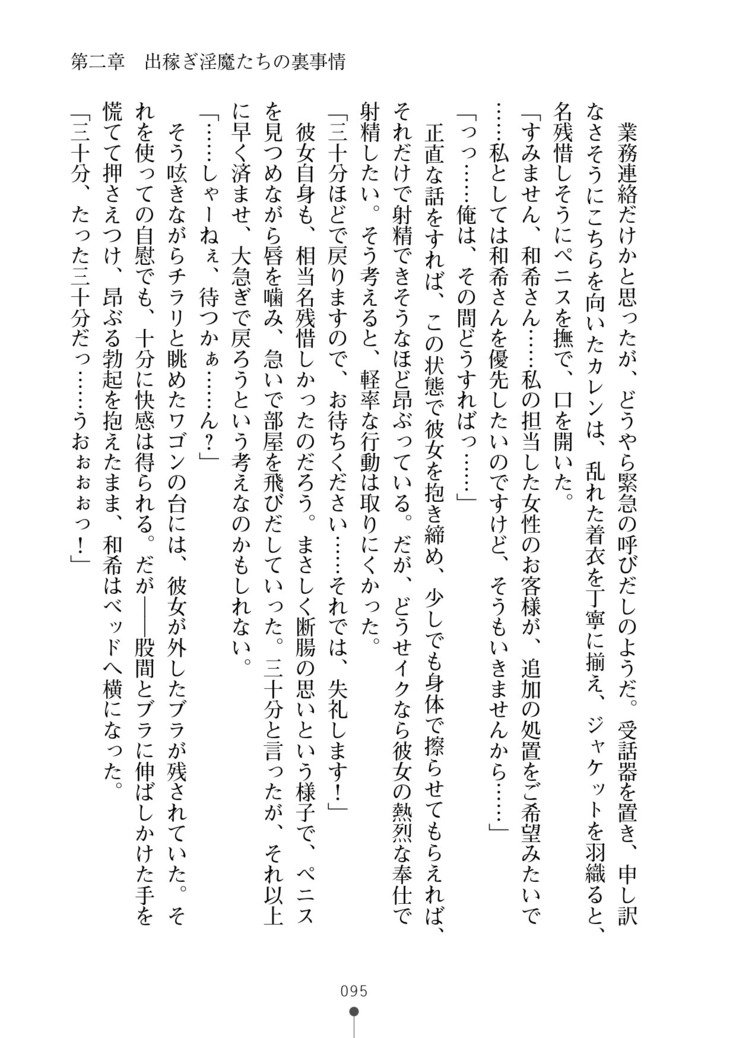 第二章　出稼ぎ淫魔たちの裏事情
　業務連絡だけかと思ったが、どうやら緊急の呼びだしのようだ。受話器を置き、申し訳
なさそうにこちらを向いたカレンは、乱れた着衣を丁寧に揃え、ジャケットを羽織ると、
名残惜しそうにペニスを撫で、口を開いた。
「すみません、和希さん……私の担当した女性のお客様が、追加の処置をご希望みたいで
……私としては和希さんを優先したいのですけど、そうもいきませんから……」
「っっ……俺は、その間どうすればっ……」
　正直な話をすれば、この状態で彼女を抱き締め、少しでも身体で擦らせてもらえれば、
それだけで射精できそうなほど昂ぶっている。だが、どうせイクなら彼女の熱烈な奉仕で
射精したい。そう考えると、軽率な行動は取りにくかった。
「三十分ほどで戻りますので、お待ちください……それでは、失礼します！」
　彼女自身も、相当名残惜しかったのだろう。まさしく断腸の思いという様子で、ペニス
を見つめながら唇を噛み、急いで部屋を飛びだしていった。三十分と言ったが、それ以上
に早く済ませ、大急ぎで戻ろうという考えなのかもしれない。
「……しゃーねぇ、待つかぁ……ん？」
　そう呟きながらチラリと眺めたワゴンの台には、彼女が外したブラが残されていた。そ
れを使っての自慰でも、十分に快感は得られる。だが――股間とブラに伸ばしかけた手を
慌てて押さえつけ、昂ぶる勃起を抱えたまま、和希はベッドへ横になった。
「三十分、たった三十分だっ……うおぉぉぉっ！」
095